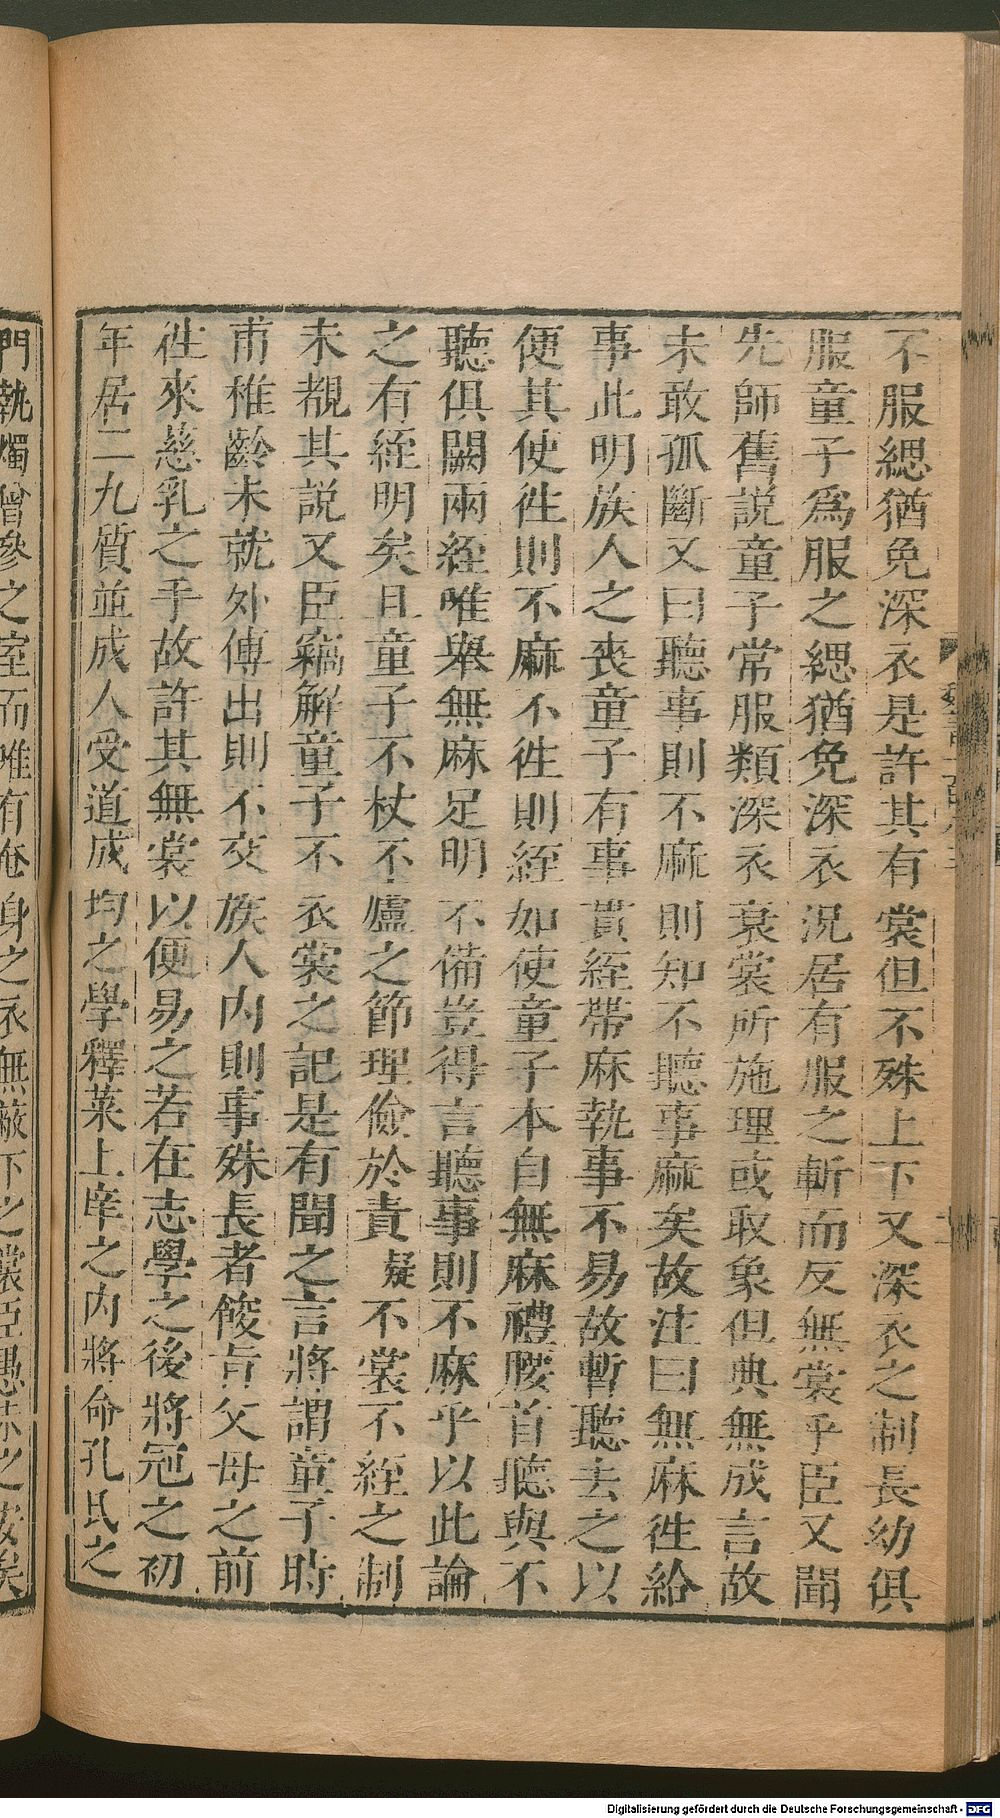 不服緦猶免深衣是許其有裳但不殊上下又深衣之制長幼俱
服童子爲服之緦猶免深衣況居有服之斬而反無裳乎臣又聞
先師舊説童子常服類深衣衰裳所施理或取象但典無成言故
未敢孤斷又曰聽事則不麻則知不聽事麻矣故注曰無麻徃給
事此明族人之喪童子有事貫絰帶麻執事不易故暫聽去之以
便其使徃則不麻不徃則絰如使童子本自無麻禮腰首聽與不
聽俱闕兩絰唯舉無麻足明不備豈得言聽事則不麻乎以此論
之有絰明矣且童子不杖不廬之節理儉於責疑不裳不絰之制
未覩其説又臣竊解童子不衣裳之記是有聞之言將謂童子時
甫稚齡未就外傅出則不交族人内則事殊長者餕旨父母之前
徃來慈乳之手故許其無裳以便易之若在志學之後將冠之初
年居二九質並成人受道成均之學釋菜上庠之内將命孔氏之
門執燭曾參之室而唯有掩身之衣無蔽下之裳臣愚未之安矣
Digitalisierung gefördert durch die Deutsche Forschungsgemeinschaft - DFG